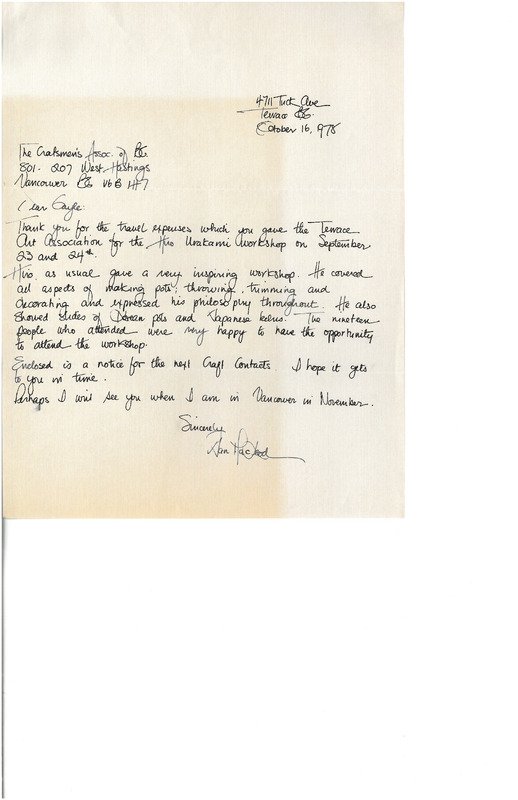 4711 Tuck Ave
Terrace BC.
October 16, 978
The Craftsmen's Assoc. of BC.
801 - 207 West Hastings
Vancouver BC V6B 1H7
Dear Gayle:
Thank you for the travel expenses which you gave the Terrace
Art Association for the Hiro Urakami workshop on September
23 and 24th.
Hiro, as usual gave a very inspiring workshop. He covered
all aspects of making pots; throwing, trimming and
decorating and expressed his philosophy throughout. He also
showed slides of pots and Japanese kilns. The nineteen
people who attended were very happy to have the opportunity
to attend the workshop.
Enclosed is a notice for the next Craft Contacts I hope it gets
to you in time.
Perhaps I will see you when I am in Vancouver in November.
Sincerely